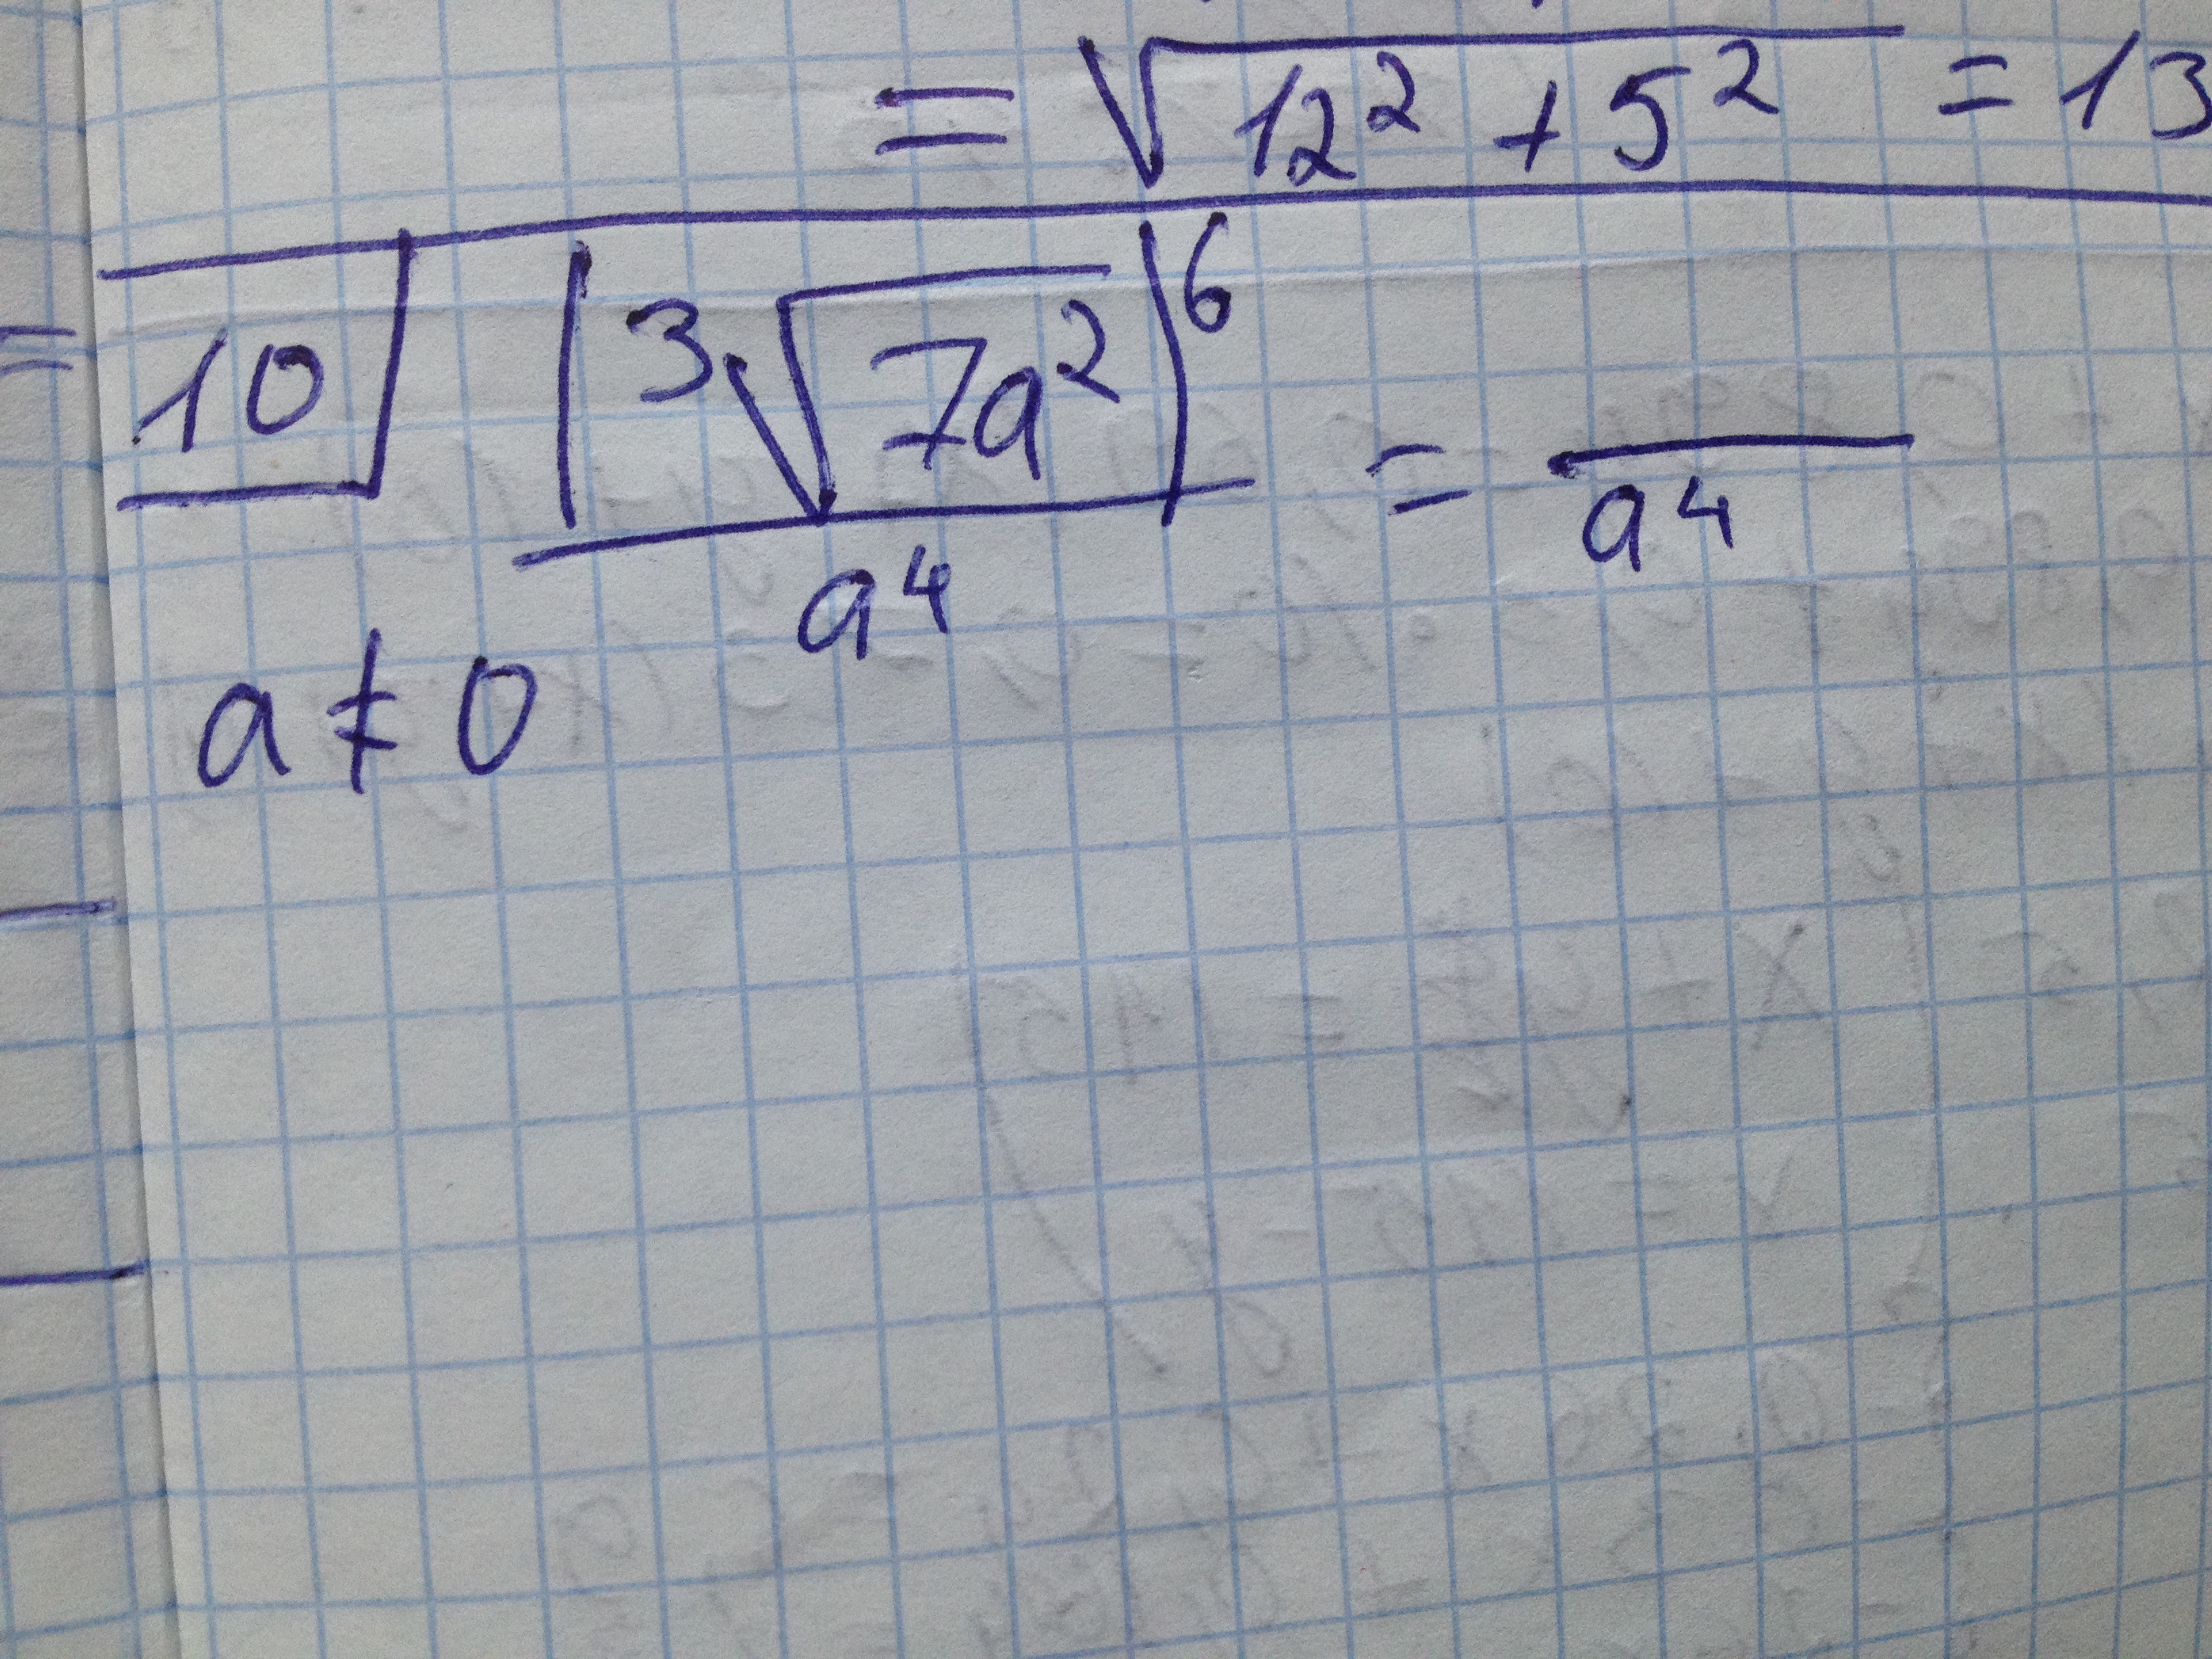 = √12² + 5² = 13
=
10 (³√7a²)⁶ / a⁴ = / a⁴
a ≠ 0